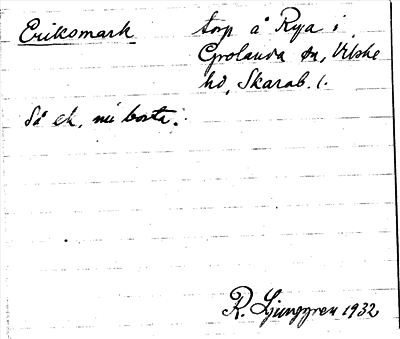 Eriksmark torp å Rya i
Grolanda sn, Vilske
hd, Skarab. l.
Så ek, nu borta.
R. Ljunggren 1932